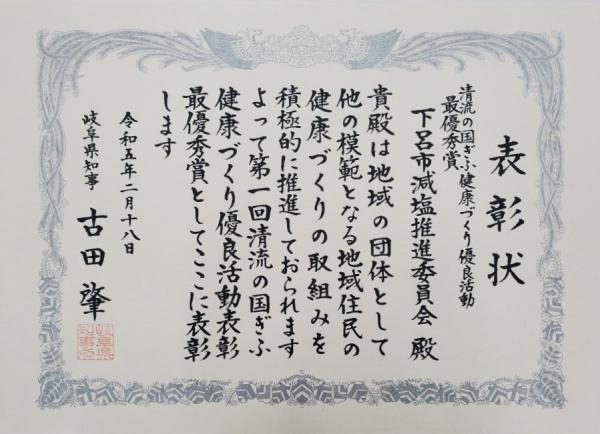 表彰状
清流の国ぎふ健康づくり優良活動
最優秀賞
下呂市減塩推進委員会 殿
貴殿は地域の団体として
他の模範となる地域住民の
健康づくりの取組みを
積極的に推進しておられます
よって第一回清流の国ぎふ
健康づくり優良活動表彰
最優秀賞としてここに表彰
します
令和五年二月十八日
岐阜県知事 古田肇